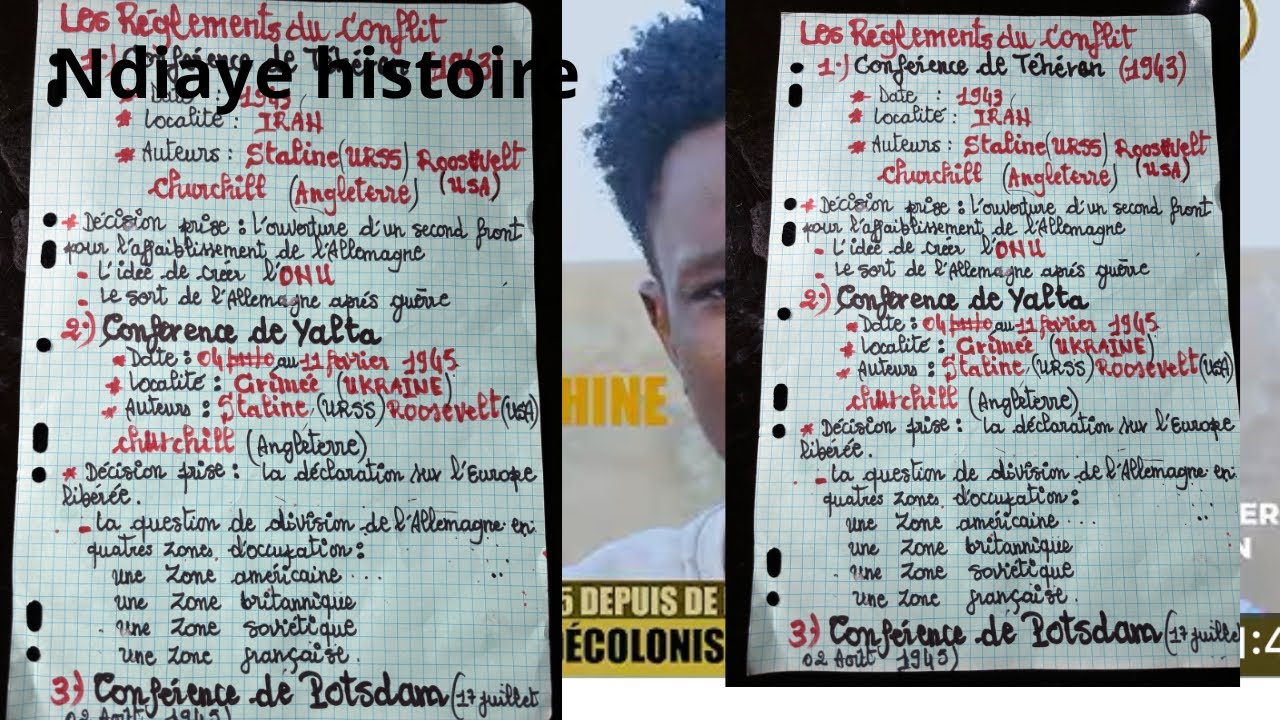 Les Réglements du Conflit
Ndiaye histoire
1.) Conférence de Téhéran (1943)
* Date : 1943
* Localité : IRAN
* Auteurs : Staline (URSS) Roosevelt
Churchill (Angleterre) (USA)
* Décision prise : l'ouverture d'un second front
pour l'affaiblissement de l'Allemagne
- L'idée de créer l'ONU
- Le sort de l'Allemagne aprés guerre
2.) Conférence de Yalta
* Date : 04 au 11 février 1945
* Localité : Crimée (UKRAINE)
* Auteurs : Staline (URSS) Roosevelt (USA)
churchill (Angleterre)
* Décision prise : la déclaration sur l'Europe
libérée.
- La question de division de l'Allemagne en
quatres zones d'occupation :
une zone américaine
une zone britannique
une zone soviétique
une zone française.
3.) Conférence de Potsdam (17 juillet
02 Août 1945)
HINE
5 DEPUIS DE
ÉCOLONIS
Les Réglements du Conflit
1.) Conférence de Téhéran (1943)
* Date : 1943
* Localité : IRAN
* Auteurs : Staline (URSS) Roosevelt
Churchill (Angleterre) (USA)
* Décision prise : l'ouverture d'un second front
pour l'affaiblissement de l'Allemagne
- L'idée de créer l'ONU
- Le sort de l'Allemagne aprés guerre
2.) Conférence de Yalta
* Date : 04 au 11 février 1945
* Localité : Crimée (UKRAINE)
* Auteurs : Staline (URSS) Roosevelt (USA)
churchill (Angleterre)
* Décision prise : la déclaration sur l'Europe
libérée.
- La question de division de l'Allemagne en
quatres zones d'occupation :
une zone américaine
une zone britannique
une zone soviétique
une zone française.
3.) Conférence de Potsdam (17 juillet
02 Août 1945)
ER
N
1:4